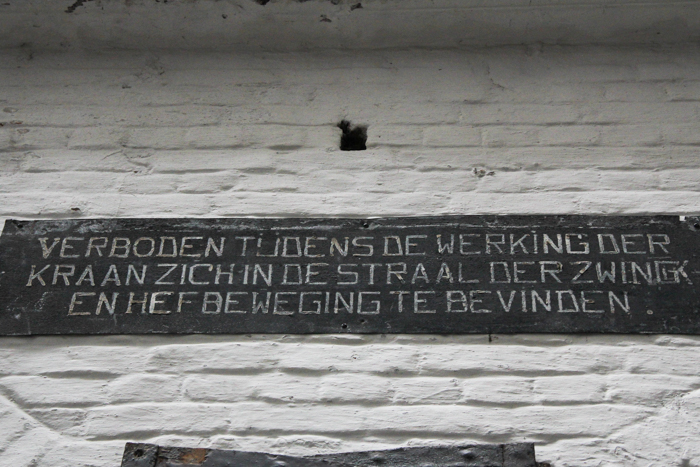 VERBODEN TIJDENS DE WERKING DER
KRAAN ZICH IN DE STRAAL DER ZWING
EN HEFBEWEGING TE BEVINDEN.